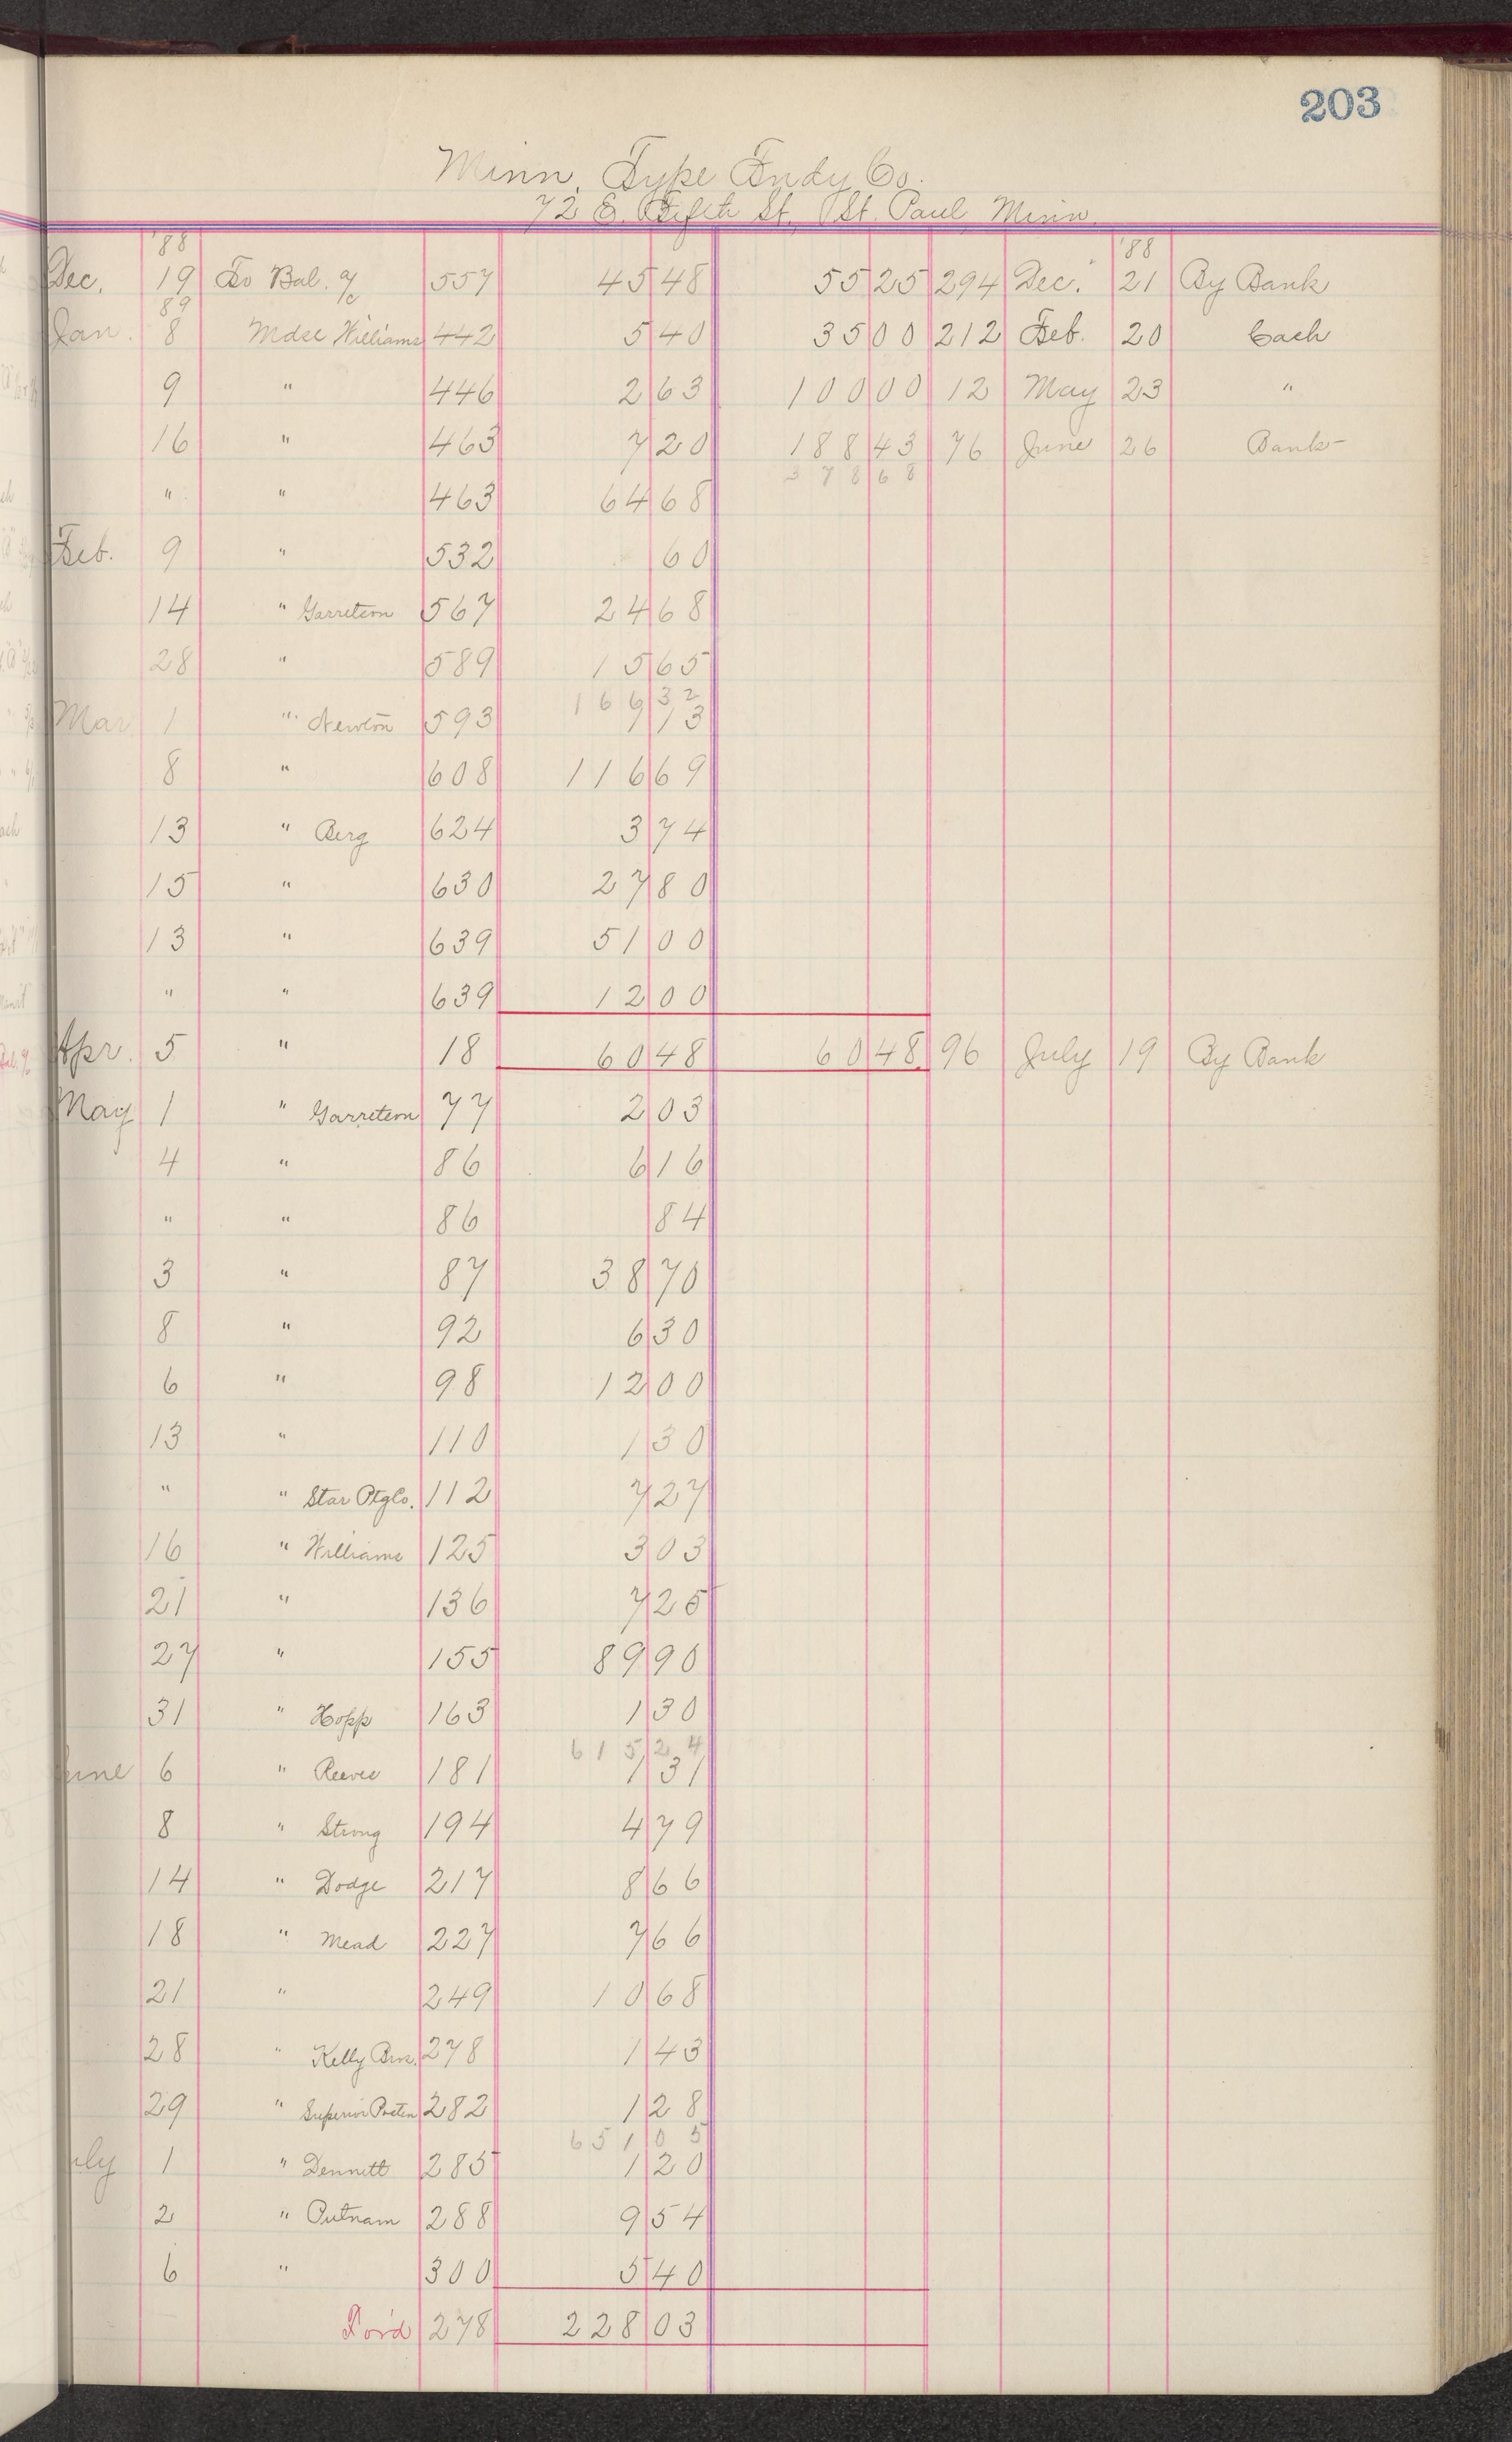 203
Minn. Type Fndy Co.
72 E. Fifth St. St. Paul Minn.
'88 '88
Dec. 19 To Bal. a/c 557 45 48 55 25 294 Dec. 21 By Bank
89
Jan. 8 Mdse Williams 442 5 40 35 00 212 Feb. 20 Cash
9 " 446 2 63 100 00 12 May 23 "
16 " 463 7 20 188 43 76 June 26 Bank
378 68
" " 463 64 68
Feb. 9 " 532 60
14 " Garretson 567 24 68
28 " 589 15 65
166 32
Mar 1 " Newton 593 7 13
8 " 608 116 69
13 " Berg 624 3 74
15 " 630 27 80
13 " 639 51 00
" " 639 12 00
Apr. 5 " 18 60 48 60 48 96 July 19 By Bank
May 1 " Garretson 77 2 03
4 " 86 6 16
" " 86 84
3 " 87 38 70
8 " 92 6 30
6 " 98 12 00
13 " 110 1 30
" " Star Ptg Co. 112 7 27
16 " Williams 125 3 03
21 " 136 7 25
27 " 155 89 90
31 " Hopp 163 1 30
615 24
June 6 " Reeves 181 1 31
8 " Strong 194 4 79
14 " Dodge 217 8 66
18 " Mead 227 7 66
21 " 249 10 68
28 " Kelly Bros. 278 1 43
29 " Superior 282 1 28
651 05
July 1 " Dennett 285 1 20
2 " Putnam 288 9 54
6 " 300 5 40
For'd 278 228 03